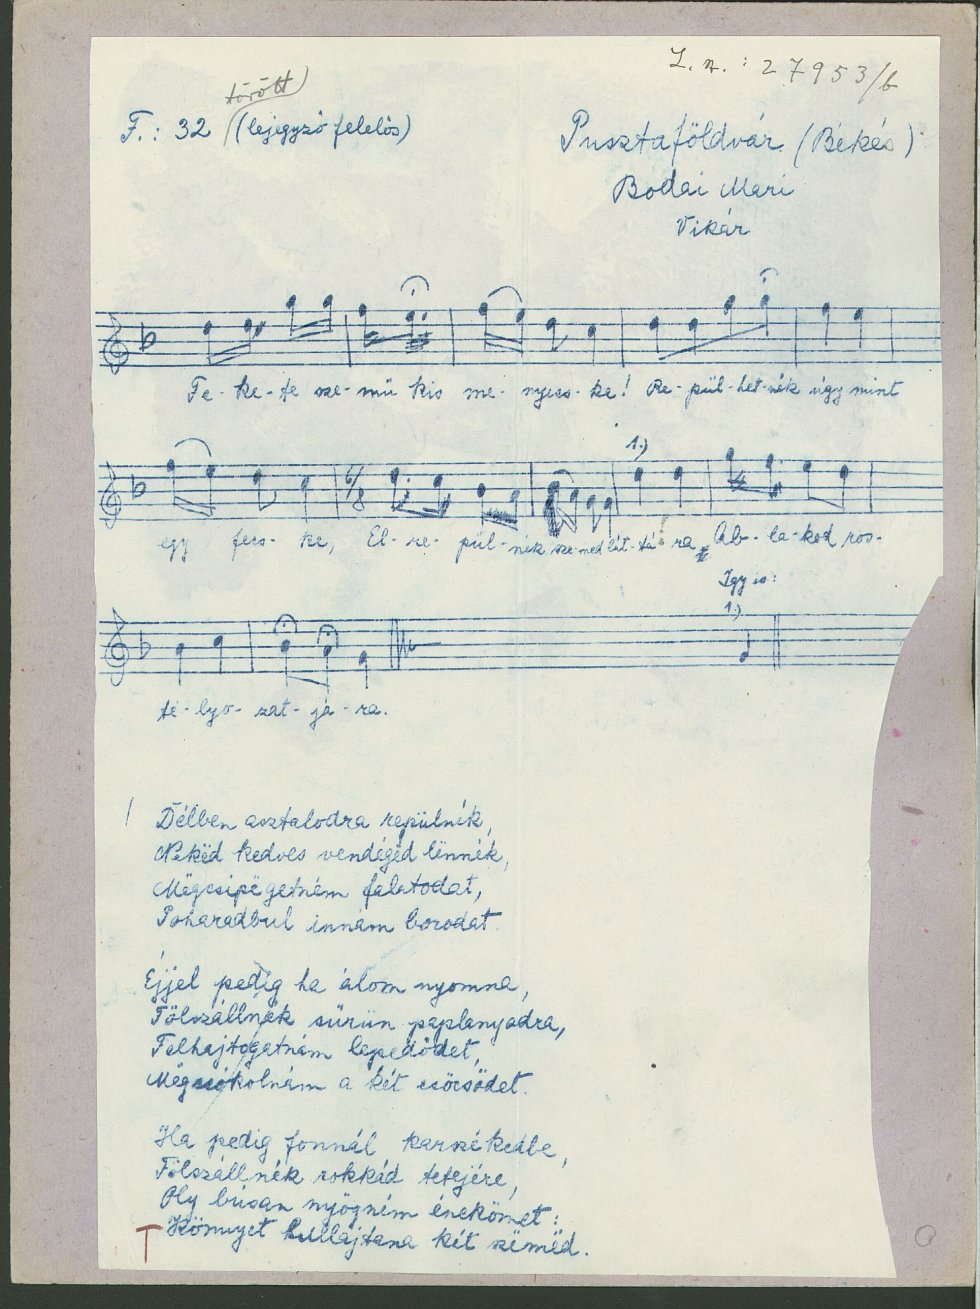 L. n. : 27953/b
törött
F.: 32 (lejegyző felelős)
Pusztaföldvár (Békés)
Bodai Mari
Vikár
Fe - ke - te sze - mű kis me - nyecs - ke! Re - pül - het - nék úgy mint
1.)
egy fecs - ke, El - re - pül - nék sze - med lát - tá - ra, Ab - la - kod ros -
Így is:
1.)
té - lyo - zat - já - ra.
Délben asztalodra repülnék,
Nekëd kedves vendégëd lënnék,
Mëgcsipëgetném falatodat,
Poharadbul innám borodat.
Éjjel pedig ha álom nyomna,
Fölszállnék sűrün paplanyodra,
Felhajtogatnám lepedődet,
Mëgcsókolnám a két csöcsödet.
Ha pedig fonnál karszékedbe,
Fölszállnék rokkád tetejére,
Oly búsan nyögném énekömet:
Könnyet hullajtana két szëmëd.